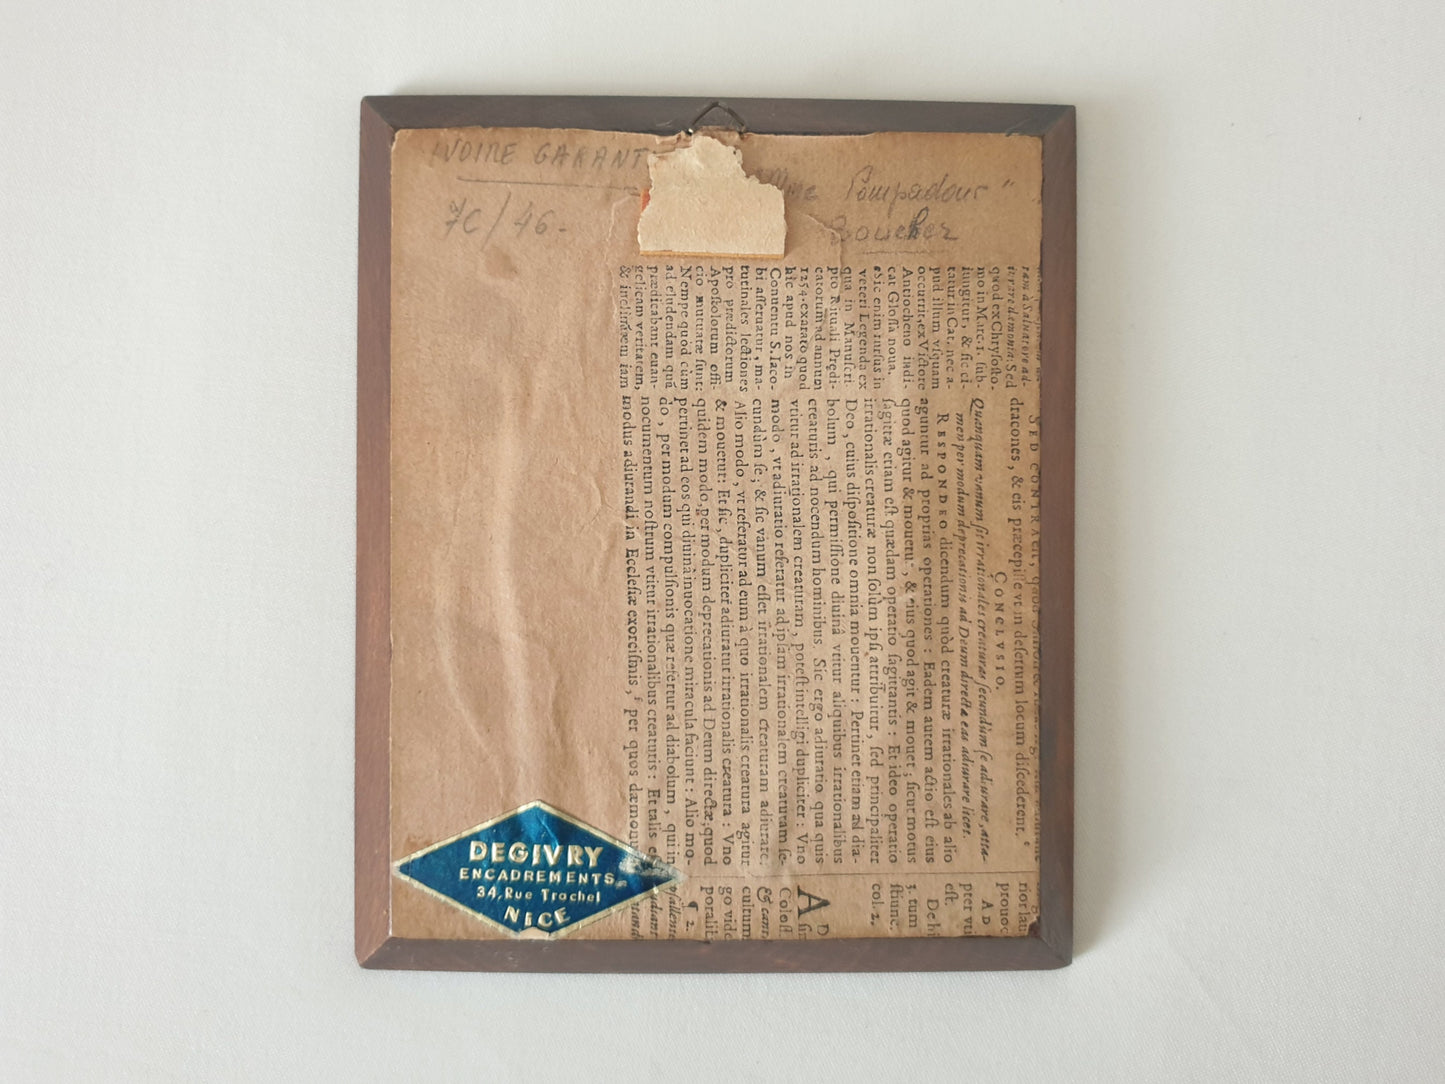 IVOIRE GARANT
Mme Pompadour"
7C/46.-
Boucher
ram à Saluatore ad-
iurare dæmonia. Sed
quod ex Chryſoſto-
mo in Marc. 1. ſub-
iungitur, & ſic ci-
tatur in Cat. nec a-
pud illum vſquam
occurrit, ex Victore
Antiocheno indi-
cat Gloſſa noua.
Sic enim rurſus in
veteri Legenda ex
qua in Manuſcri-
pto Rituali Prędi-
catorum ad annum
1254. exarato quod
hîc apud nos in
Conuentu S. Iaco-
bi aſſeruatur, ma-
tutinales lectiones
pro prædictorum
Apoſtolorum offi-
cio mutuatæ ſunt:
Nempe quòd cùm
ad eludendam quã
prædicabant euan-
gelicam veritatem,
& iam
SED CONTRA eſt, quòd
dracones, & eis præcepiſſe vt in deſertum locum diſcederent.
CONCLVSIO.
Quanquam vanum ſit irrationales creaturas ſecundùm ſe adiurare, atta-
men per modum deprecationis ad Deum directæ eas adiurare licet.
RESPONDEO dicendum quòd creaturæ irrationales ab alio
aguntur ad proprias operationes : Eadem autem actio eſt eius
quod agitur & mouetur, & eius quod agit & mouet ; ſicut motus
ſagittæ etiam eſt quædam operatio ſagittantis : Et ideo operatio
irrationalis creaturæ non ſolùm ipſi attribuitur, ſed principaliter
Deo, cuius diſpoſitione omnia mouentur : Pertinet etiam ad dia-
bolum, qui permiſſione diuinâ vtitur aliquibus irrationalibus
creaturis ad nocendum hominibus. Sic ergo adiuratio qua quis
vtitur ad irrationalem creaturam, poteſt intelligi dupliciter : Vno
modo, vt adiuratio referatur ad ipſam irrationalem creaturam ſe-
cundùm ſe ; & ſic vanum eſſet irrationalem creaturam adiurare.
Alio modo, vt referatur ad eum à quo irrationalis creatura agitur
& mouetur: Et ſic, dupliciter adiuratur irrationalis creatura : Vno
quidem modo, per modum deprecationis ad Deum directæ; quod
pertinet ad eos qui diuinâ inuocatione miracula faciunt : Alio mo-
do, per modum compulſionis quæ refertur ad diabolum, qui in
nocumentum noſtrum vtitur irrationalibus creaturis : Et talis
modus adiurandi in Eccleſiæ exorciſmis, per quos dæmonum
AD
prouoc
rior lau
pter vti
eſt.
De hi
3. tum
ſtiunc.
col. 2.
A
Coloſſ.
& cant
cultum
go vide
poralib
¶ 2.
pſallente
DEGIVRY
ENCADREMENTS
34, Rue Trachel
NICE